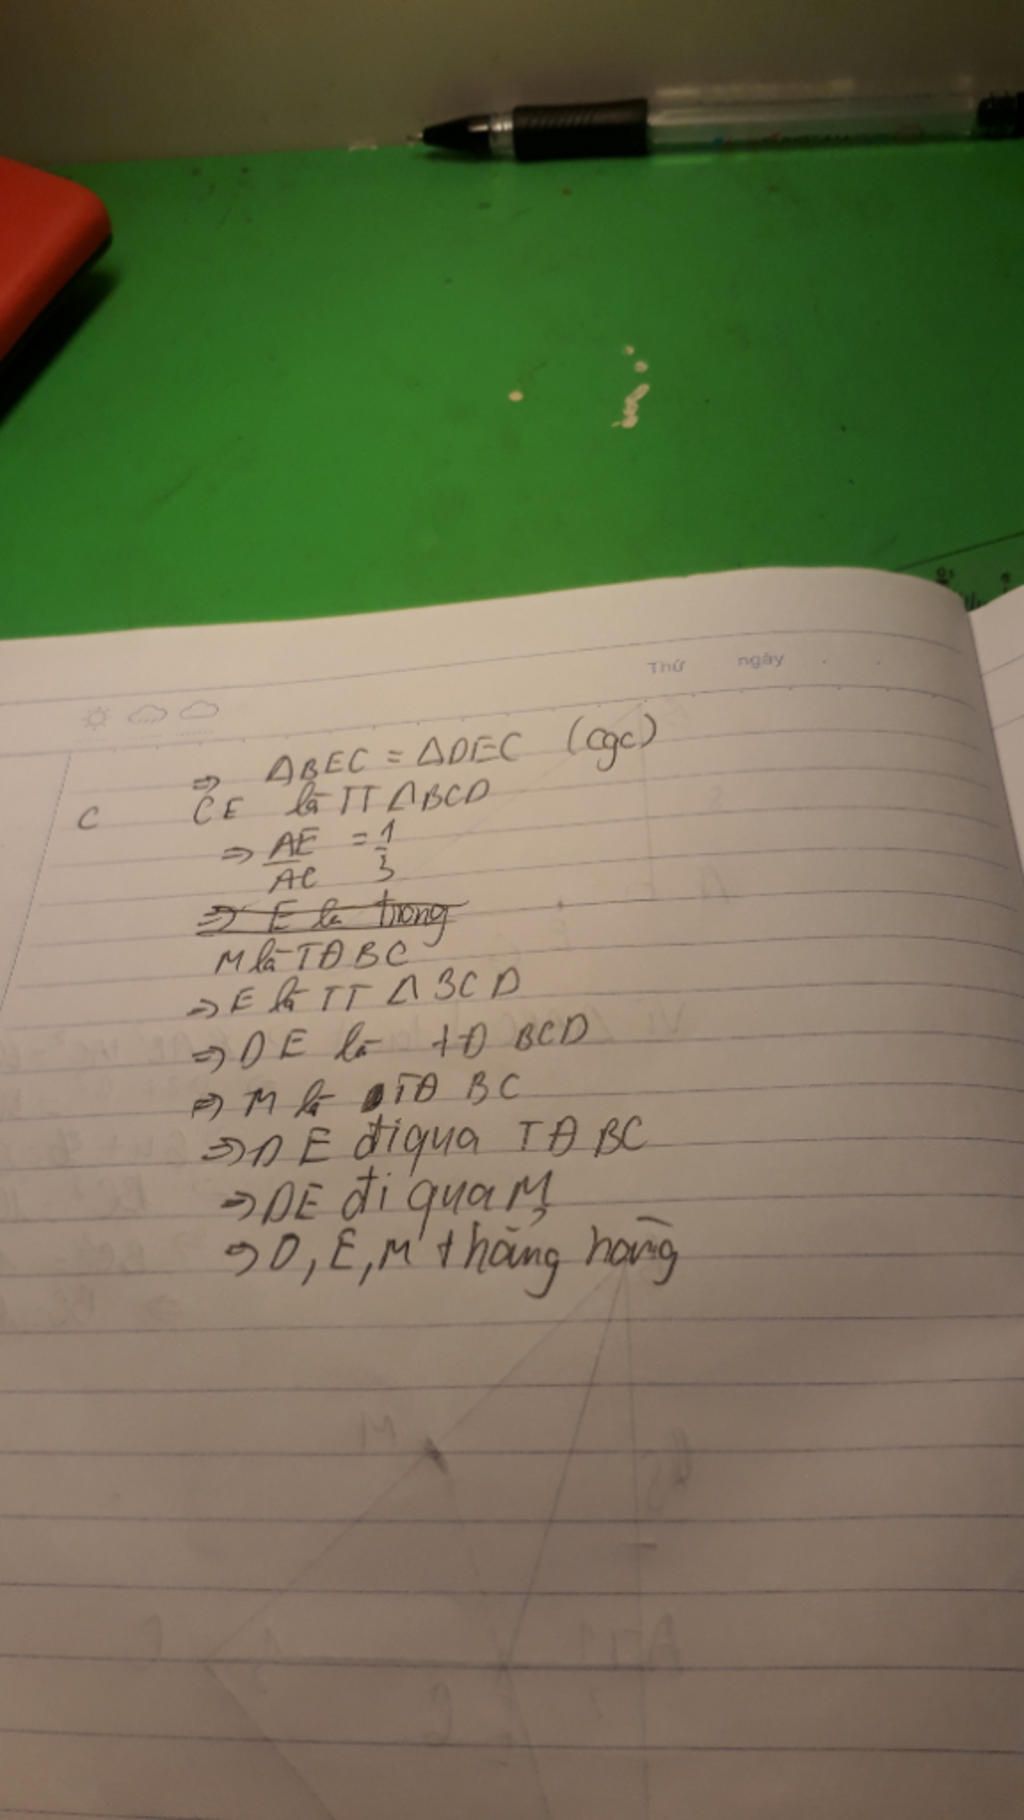 Thứ ngày
⇒ ΔBEC = ΔDEC (cgc)
C CE là TT ΔBCD
⇒ AE/AC = 1/3
⇒ E là trong
M là TĐ BC
⇒ E là TT Δ BCD
⇒ DE là tĐ BCD
⇒ M là TĐ BC
⇒ DE đi qua TĐ BC
⇒ DE đi qua M
⇒ D, E, M thẳng hàng